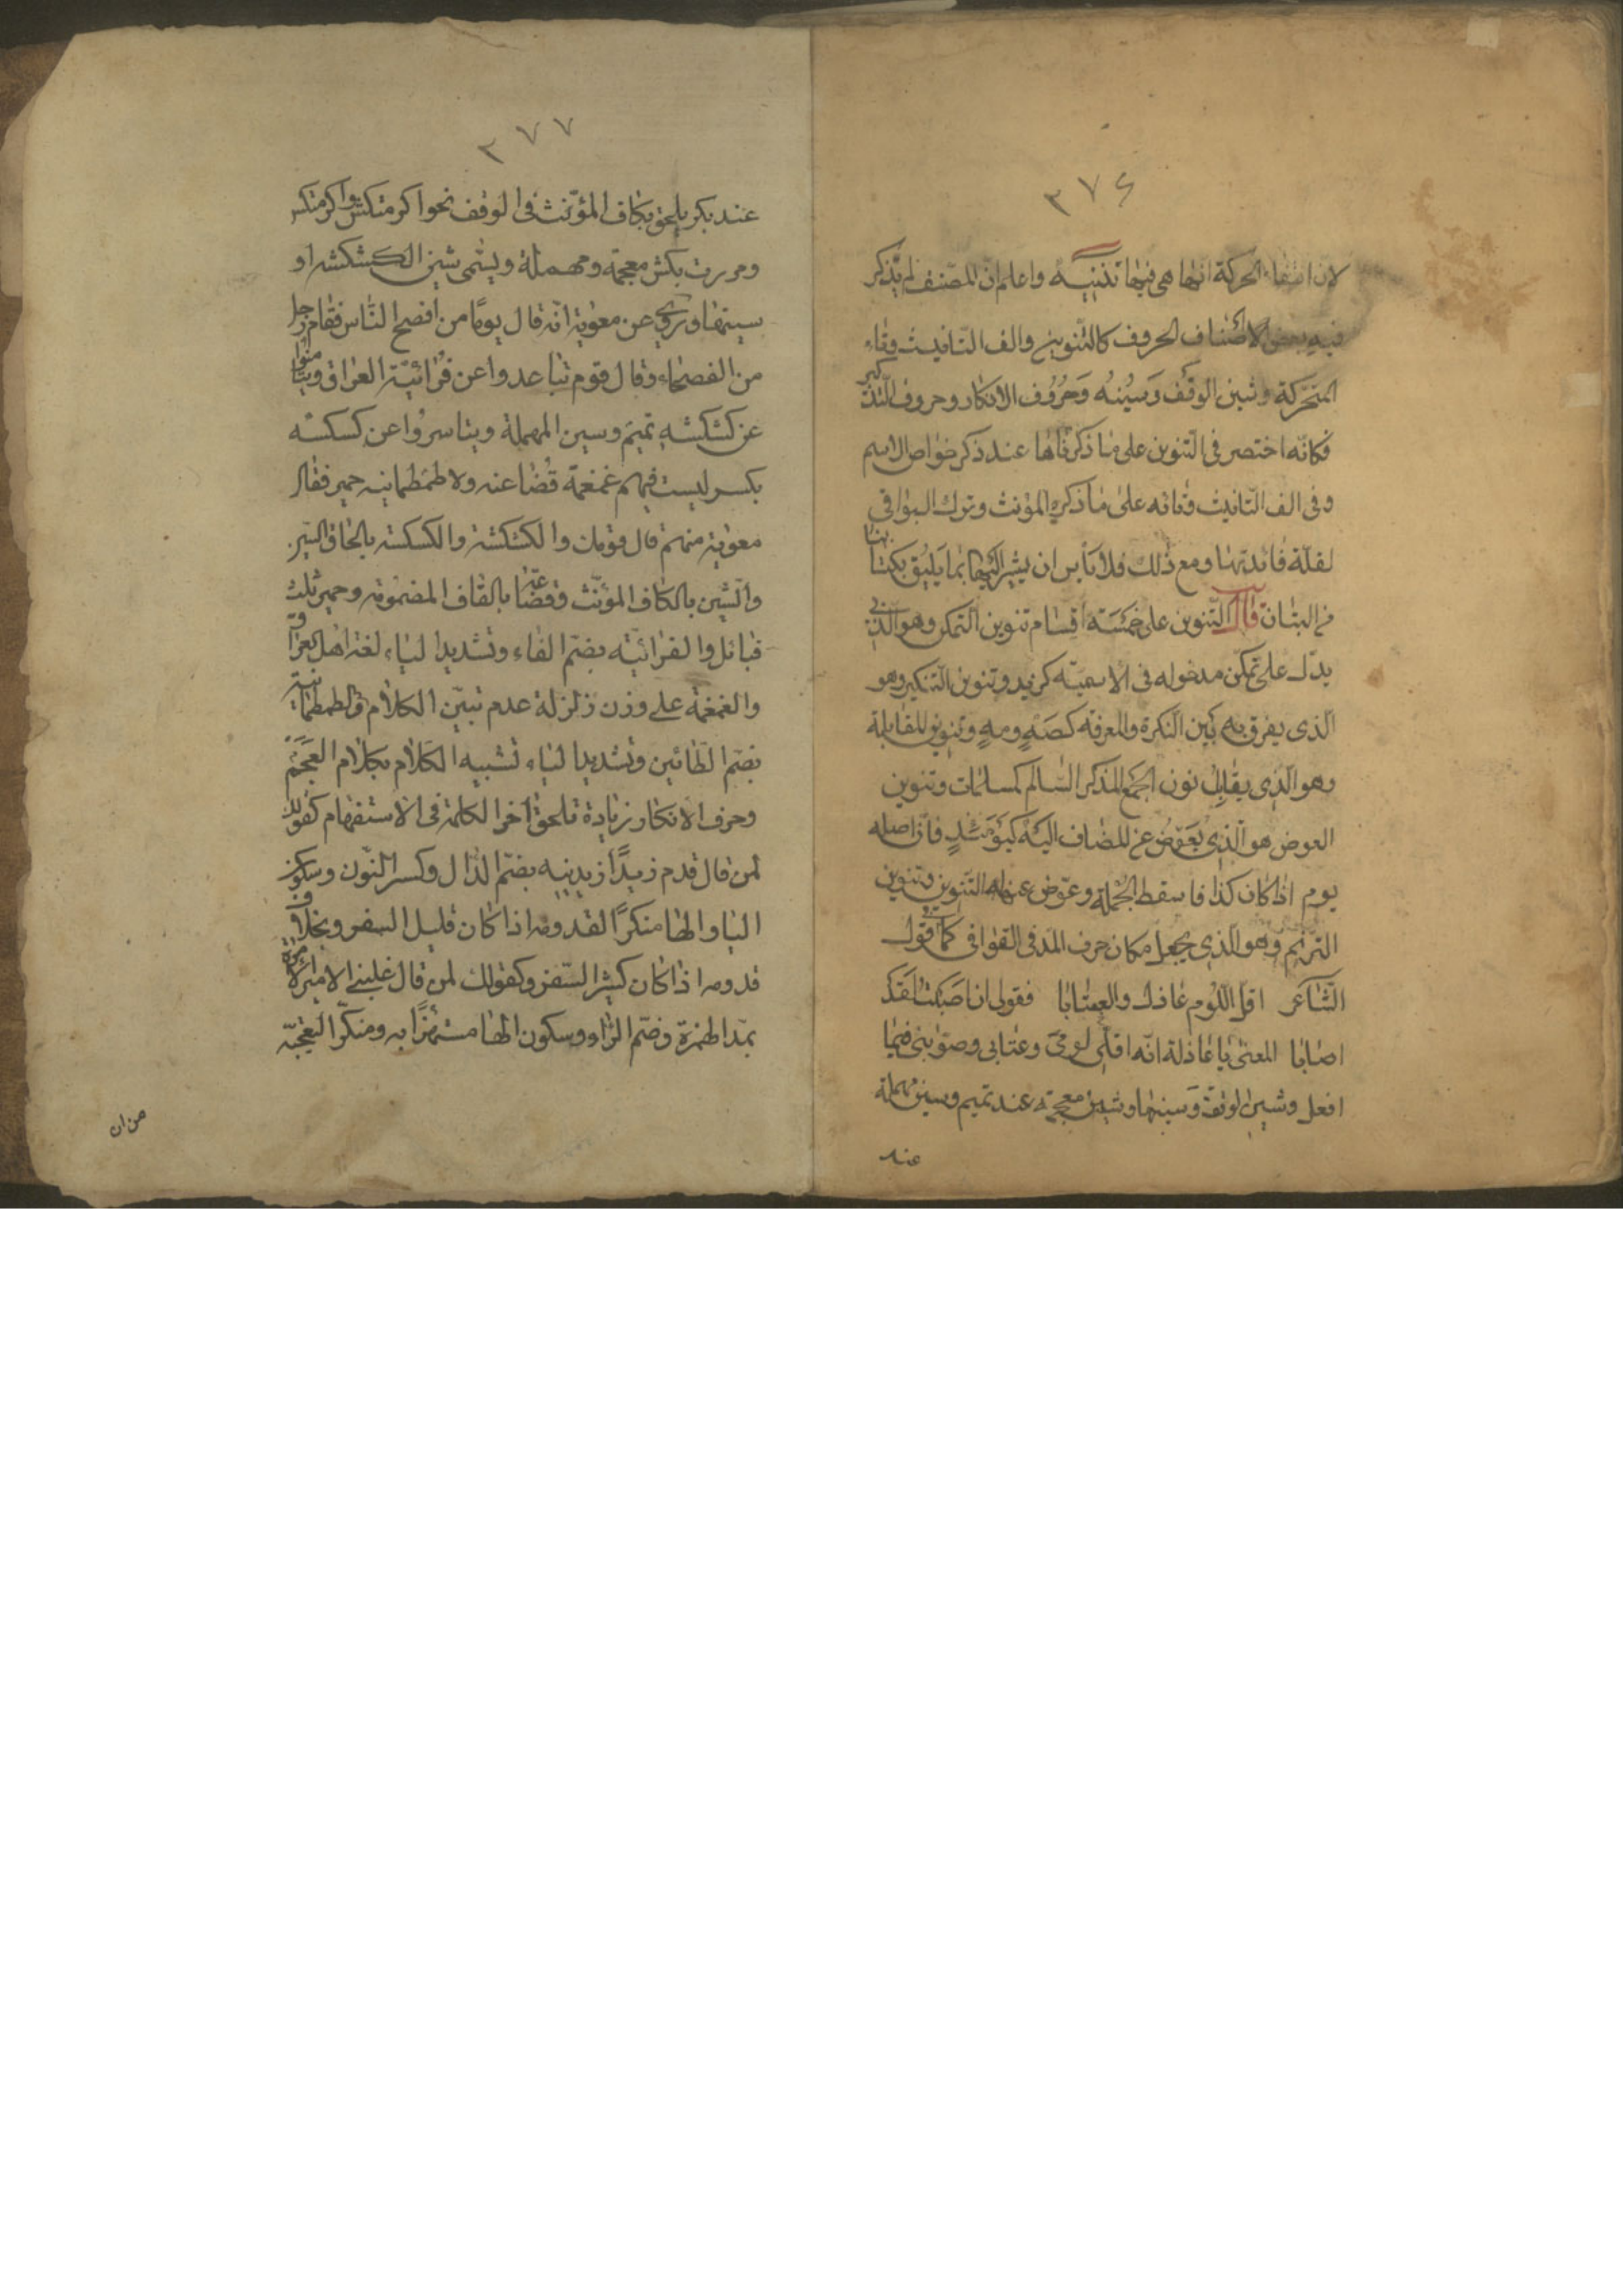 ٣٧٦
لان انتفاء الحركة انما هى فيها تذنيبه واعلم ان المصنف لم يذكر
فيه بعض الاصناف الحروف كالتنوين والف التانيث وتاء
المتحركة وشين الوقف وسينه وحروف الانكار وحروف التذكير
فكانه اختصر فى التنوين على ما ذكر فاها عند ذكر خواص الاسم
وفى الف التانيث وتائه على ما ذكره المؤنث وترك البواقى
لقلة فائدتها ومع ذلك فلا باس ان يشير اليها بما يليق بكتابنا
من البيان قال التنوين على خمسة اقسام تنوين التمكن وهو الذى
يدل على تمكن مدخوله فى الاسمية كزيد وتنوين التنكير وهو
الذى يفرق به بين النكرة والمعرفة كصه ومه وتنوين المقابلة
وهو الذى يقابل نون الجمع المذكر السالم كمسلمات وتنوين
العوض هو الذى يعوض عن المضاف اليه كيومئذ فان اصله
يوم اذا كان كذا فاسقط الجملة وعوض عنها التنوين وتنوين
الترنم وهو الذى يجعل مكان حرف المد فى القوافى كما فى قول
الشاعر اقل اللوم عاذل والعتابا فقولى ان اصبت لقد
اصابا المعنى يا عاذلة انه اقلى لومى وعتابى وصوبنى فيما
افعل وشين الوقف وسينها وشين معجمة عند تميم وسين مهملة
عند
٣٧٧
عند بكر يلحق بكاف المؤنث فى الوقف نحو اكرمتكش واكرمتكس
ومررت بكش معجمة ومهملة ويسمى شين الكشكشه او
سينها وتروى عن معوية انه قال يوما من افصح الناس فقام رجل
من الفصحاء وقال قوم تباعدوا عن فراتية العراق وتيامنوا
عن كشكشه تميم وسين المهملة وتياسروا عن كسكسه
بكر ليست فيهم غمغمة قضاعه ولا طمطمانيه حمير فقال
معوية منهم قال قومك والكشكشة والكسكسه بالحاق السين
والشين بالكاف المؤنث وقضاعة بالقاف المضمومة وحمير ثلث
قبائل والفراتيه بضم الفاء وتشديد الياء لغة اهل العراق
والغمغمة على وزن زلزلة عدم تبين الكلام والطمطمانية
بضم الطائين وتشديد الياء تشبيه الكلام بكلام العجم
وحرف الانكار زيادة تلحق اخر الكلمة فى الاستفهام كقولك
لمن قال قدم زيدا زيدنيه بضم الدال وكسر النون وسكون
اليا والها منكرا لقدومه اذا كان قليل السفر وبخلاف
قدومه اذا كان كثير السفر وكقولك لمن قال غلبنى الامير الاميروه
بمد الهمزة وضم الراء وسكون الها مستهزا به ومنكرا لتعجبه
من ان